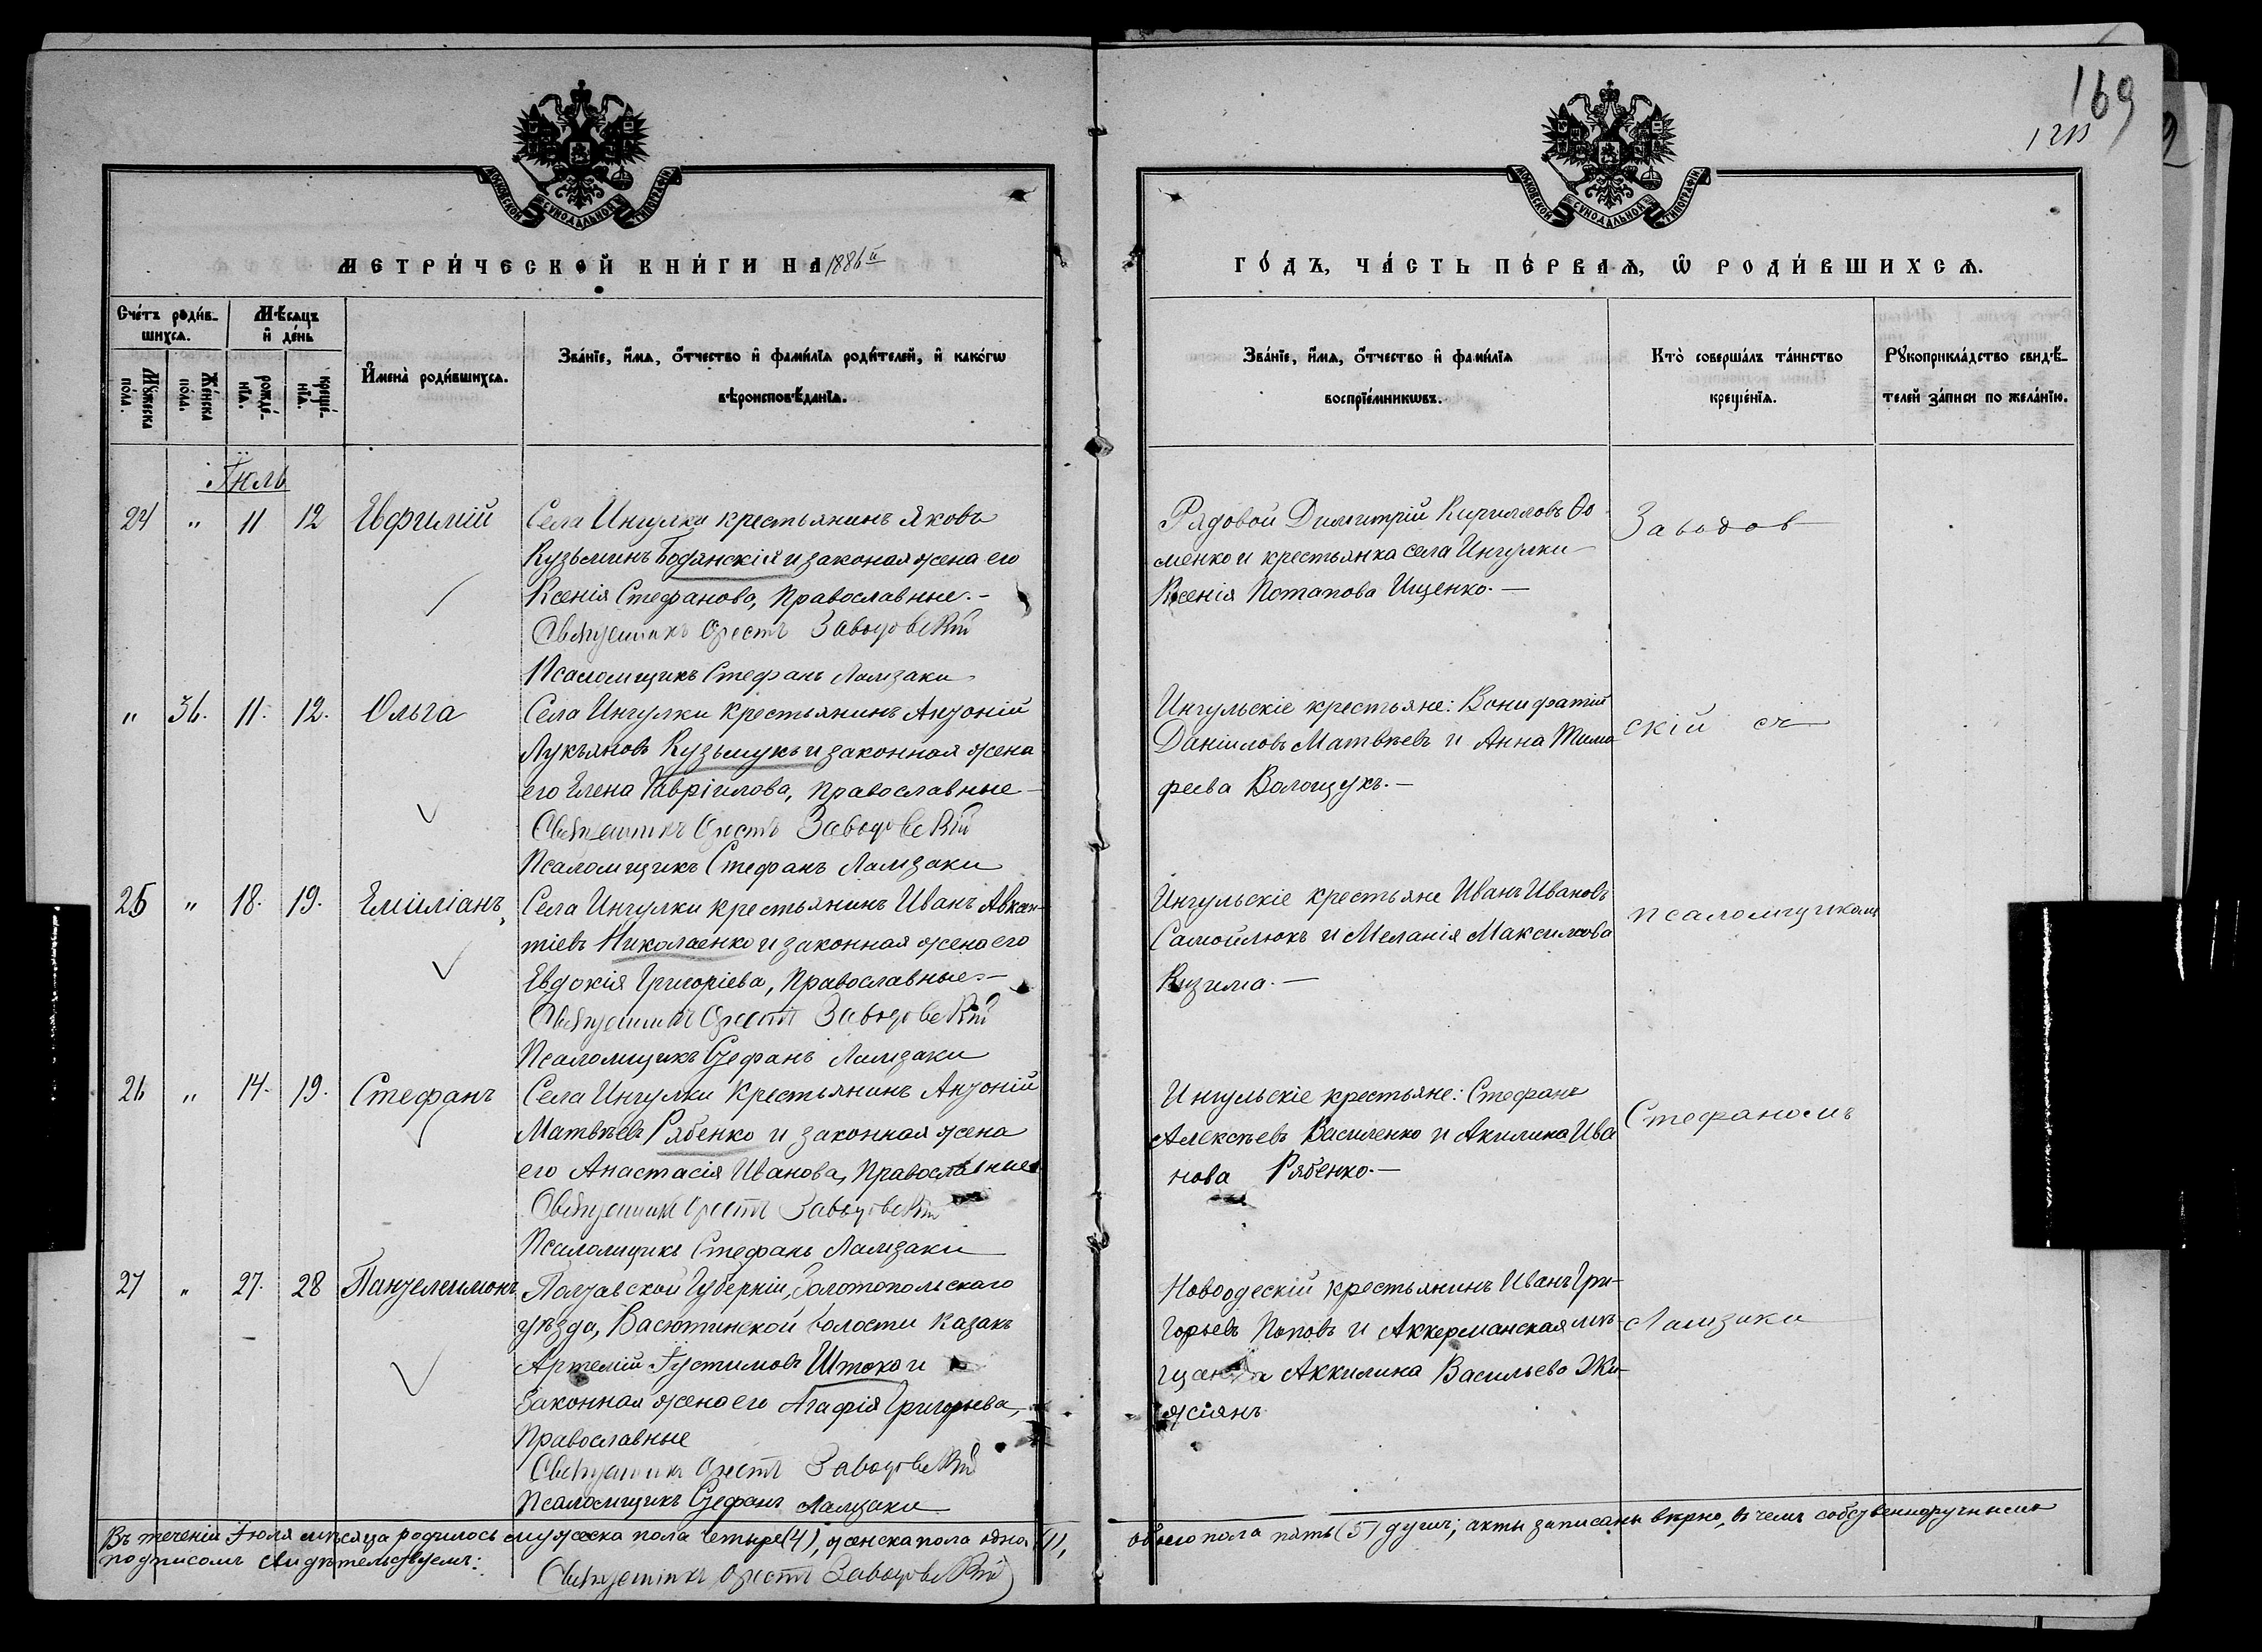 169
1213
МОСКОВСКОЙ СѴНОДАЛЬНОЙ ТИПОГРАФІИ
МОСКОВСКОЙ СѴНОДАЛЬНОЙ ТИПОГРАФІИ
МЕТРИ́ЧЕСКОЙ КНИ́ГИ НА 1886й
ГО́ДЪ, ЧА́СТЬ ПЕ́РВАѦ, Ѽ РОДИ́ВШИХСѦ.
Сче́тъ роди́в-
шихсѧ.
Мѣ́сѧцъ
и҆ де́нь
Мꙋ́жеска
по́ла.
Же́нска
по́ла.
рожде́-
нїѧ.
креще́-
нїѧ.
И҆мена̀ роди́вшихсѧ.
Зва́нїе, и҆́мѧ, ѻ҆́тчество и҆ фами́лїѧ роди́телей, и҆ како́гѡ
вѣроисповѣ́данїѧ.
Зва́нїе, и҆́мѧ, ѻ҆́тчество и҆ фами́лїѧ
воспрїе́мникѡвъ.
Кто̀ соверша́лъ та́инство
креще́нїѧ.
Рꙋкоприкла́дство свидѣ́-
телей за́писи по жела́нїю.
Іюль
24 " 11 12 Евфимій
Села Ингулки крестьянинъ Яковъ
Кузьминъ Бодянскій и законая жена его
Ксенія Стефанова, Православные.-
Священникъ Орестъ Заводовскій
Псаломщикъ Стефанъ Ламзаки
Рядовой Димитрій Кирилловъ Ѳо
менко и крестьянка села Ингулки
Ксенія Потапова Ищенко.—
Заводов
" 36. 11. 12. Ольга
Села Ингулки крестьянинъ Антоній
Лукьяновъ Кузьмукъ и законная жена
его Елена Гавріилова, Православные
Священникъ Орестъ Заводовскій
Псаломщикъ Стефанъ Ламзаки
Ингульскіе крестьяне: Вонифатій
Даніиловъ Матвѣевъ и Анна Тимо
феева Волощукъ.—
скій съ
25 " 18. 19. Емиліанъ
Села Ингулки крестьянинъ Иванъ Авксен-
тіевъ Николаенко и законная жена его
Евдокія Григоріева, Православные.—
Священникъ Орестъ Заводовскій
Псаломщикъ Стефанъ Ламзаки
Ингульскіе крестьяне Иванъ Ивановъ
Самойлюкъ и Меланія Максимова
Кизима.—
псаломщикомъ
26 " 14. 19. Стефанъ
Села Ингулки крестьянинъ Антоній
Матвѣевъ Рябенко и законная жена
его Анастасія Иванова, Православные
Священникъ Орестъ Заводовскій
Псаломщикъ Стефанъ Ламзаки
Ингульскіе крестьяне: Стефанъ
Алексѣевъ Василенко и Акилина Ива
нова Рябенко.—
Стефаномъ
27 " 27. 28 Пантелеимонъ
Полтавской Губерніи, Золотопольскаго
уѣзда, Васютинской волости казакъ
Артемій Іустимовъ Штоко и
законная жена его Агафія Григорьева,
Православные
Священникъ Орестъ Заводовскій
Псаломщикъ Стефанъ Ламзаки
Новоодескій крестьянинъ Иванъ Гри-
горьевъ Поповъ и Аккерманская мѣ-
щанка Аккилина Васильева
Ламзаки
Въ теченіи Іюля мѣсяца родилось мужеска пола четыре (4), женска пола одна (1),
обоего пола пять (5) душъ; акты записаны вѣрно, въ чемъ собственноручнымъ
подписомъ свидѣтельствуемъ:
Священникъ Орестъ Заводовскій